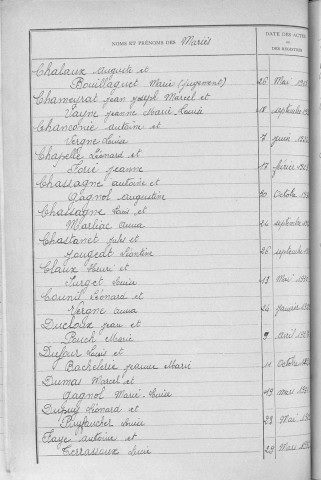 NOMS ET PRÉNOMS DES Mariés
DATE DES ACTES
OU
DES REGISTRES
Chalaux Auguste et
Bouillaguet Marie (jugement) 26 Mai
Chameyrat Jean Joseph Marcel et
Vayne Jeanne Marie Louise 18 septembre
Chanconie antoine et
Vergne Louise 7 juin
Chapelle Léonard et
Jeanne 17 février
Chassagne antoine et
Gagnol augustine 30 Octobre
Chassagne Louis et
Marliac anna 24 septembre
Chastanet Jules et
Jougeat Léontine 26 septembre
Claux Henri et
Surget Louise 13 Mai
Counil Léonard et
Vergne anna 24 janvier
Ducloux Jean et
Puech Marie 9 avril
Dufour Louis et
Bachelerie Jeanne Marie 11 Octobre
Dumas Marcel et
Gagnol Marie Louise 19 mars
Dupuy Léonard et
Puyfaucher Louise 23 Mai
Faye antoine et
Terrassoux Lucie 29 Mars